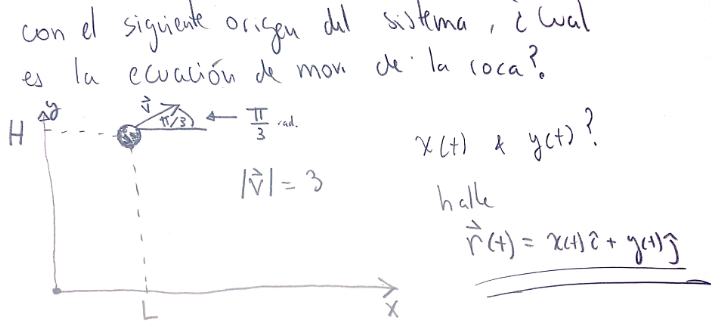 con el siguiente origen del sistema, ¿Cual
es la ecuación de mov. de la coca?.
y
H
v⃗
π/3
← π/3 rad.
x(t) & y(t)?
|v⃗| = 3
halle
r⃗(t) = x(t) î + y(t) ĵ
L
X